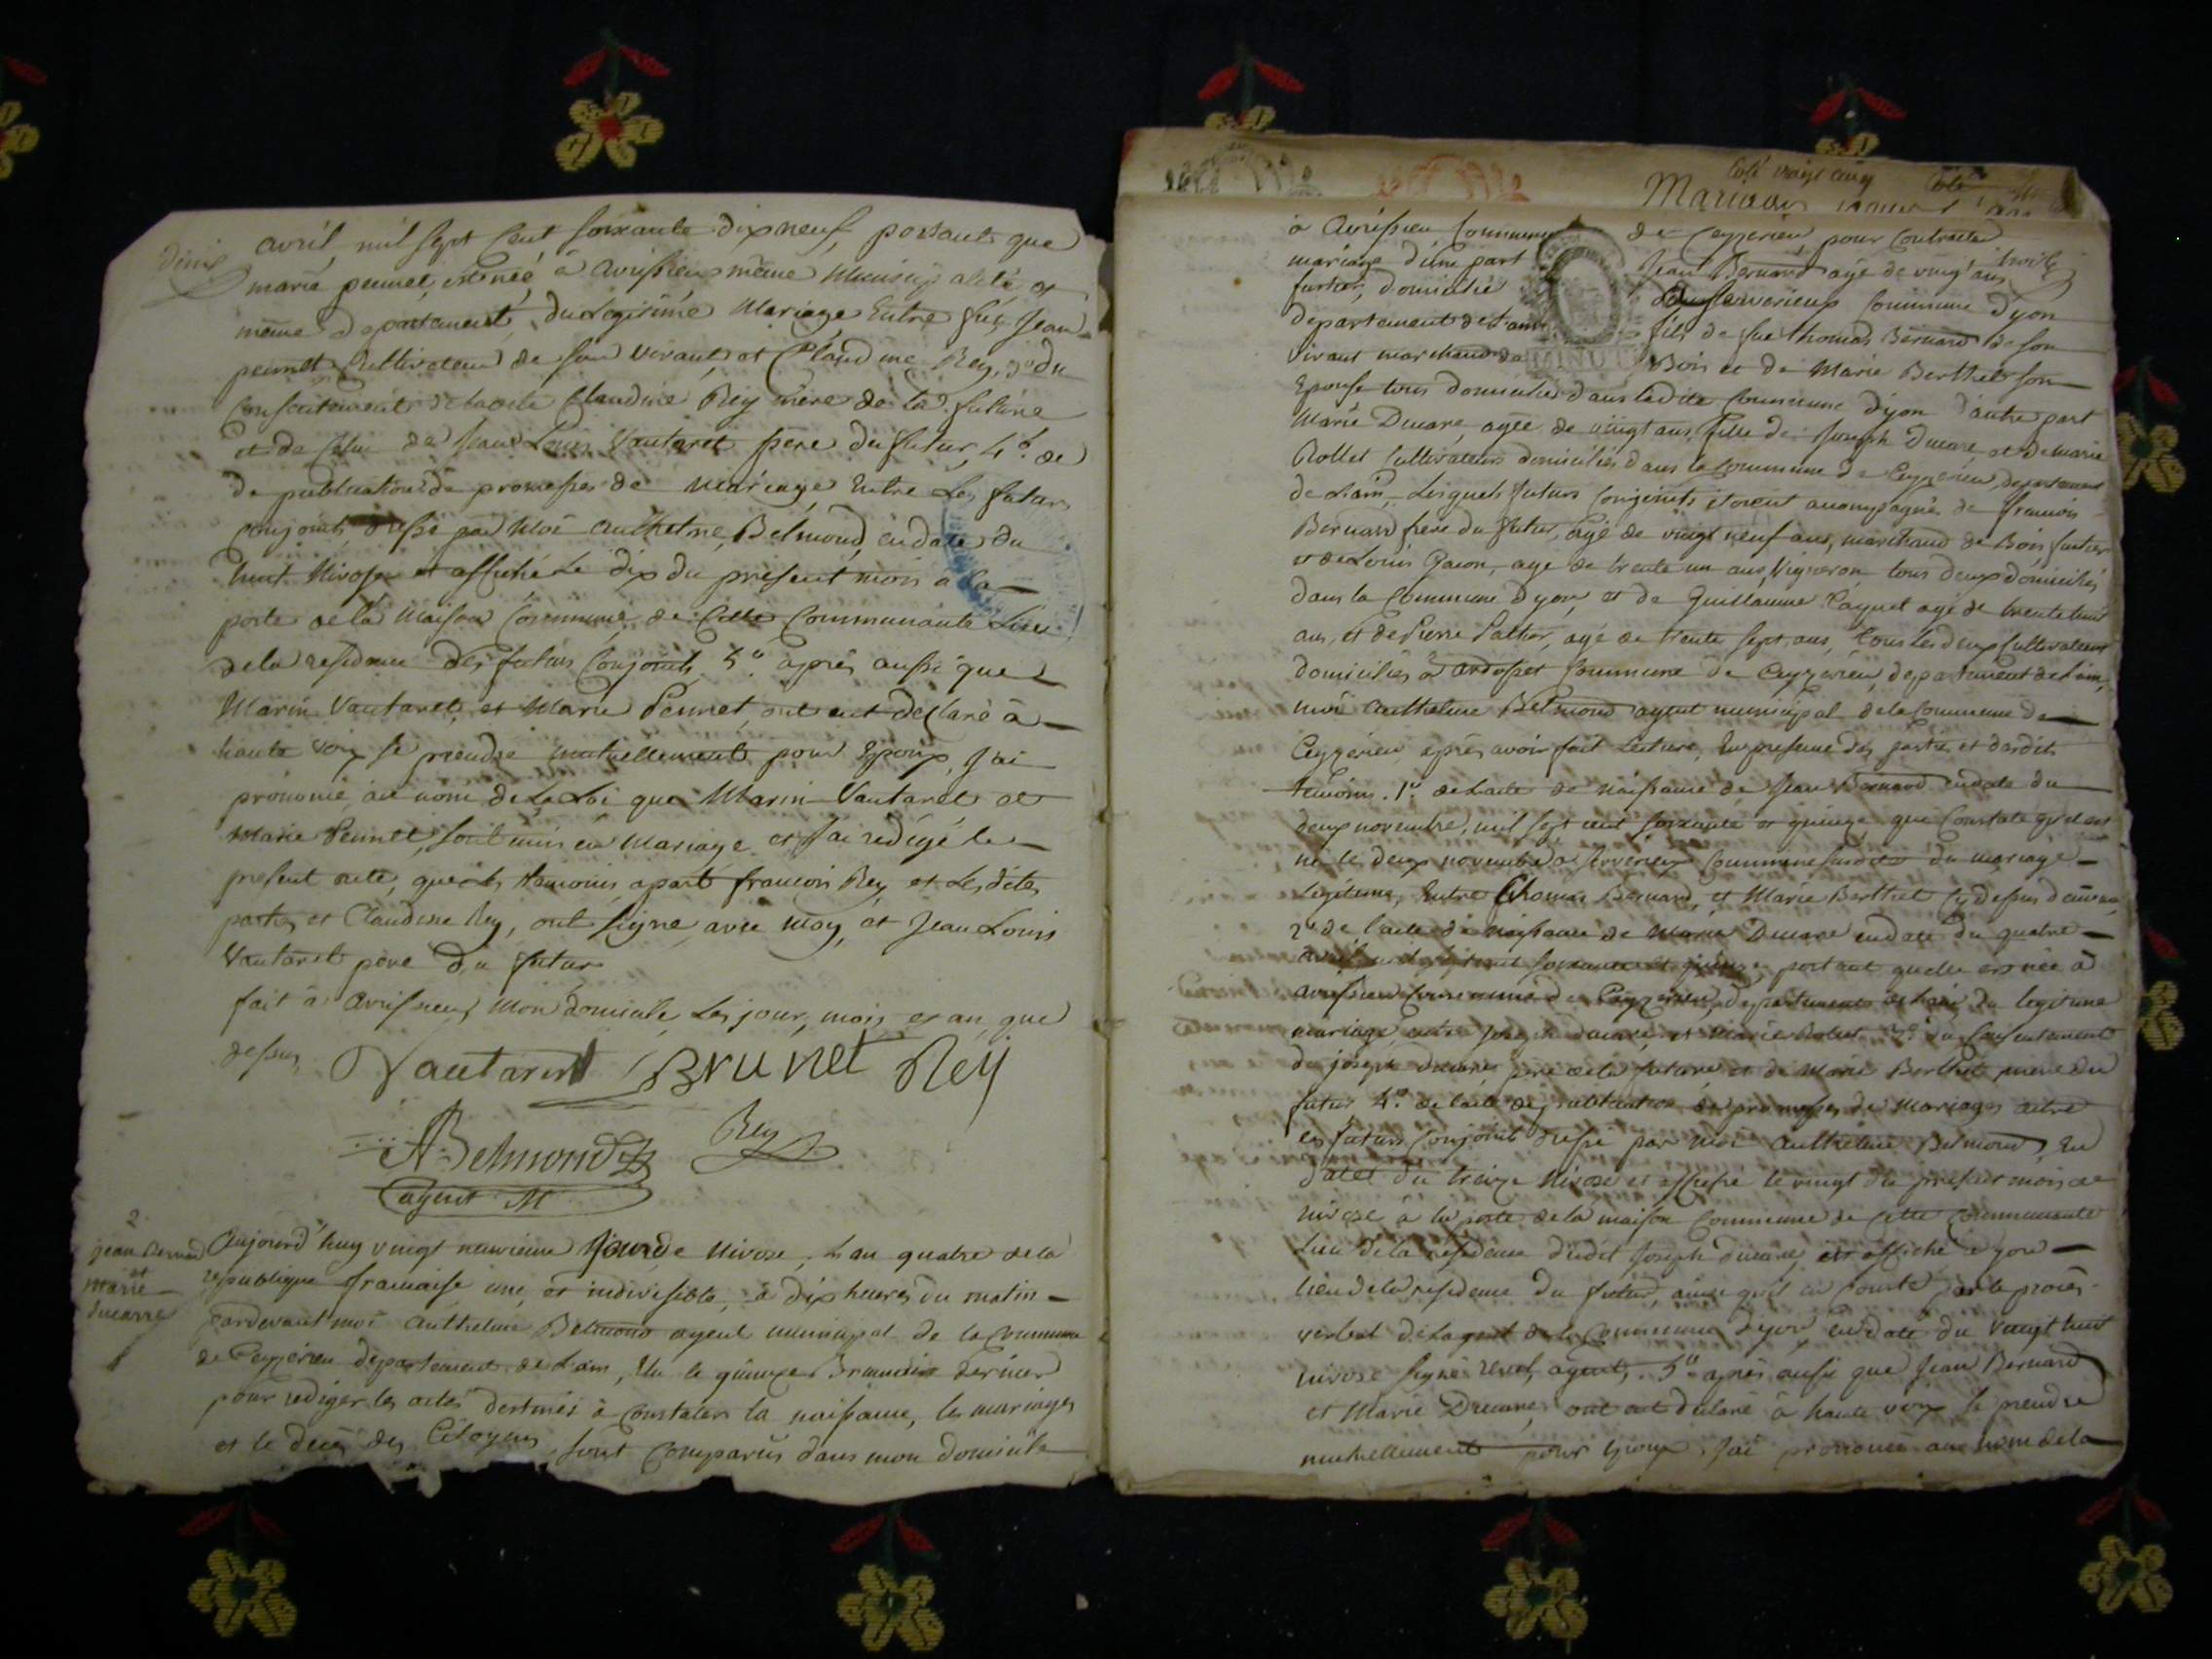 avril, mil sept cent soixante dix neuf, portant que
marie peunet, est née à avrissieu même Municipalité et
même departement, du legitime Mariage Entre feu Jean
peunet Cultivateur de son vivant, et Claudine Rey, 3° du
Consentement de ladite Claudine Rey mère de la future
et de Celui de Jean Louis Vautaret père du futur, 4°. de
de publication de promesses de mariage Entre Les futurs
conjoints dressé par Moi Authelme Belmond, en date du
huit Nivose et affiché Le dix du présent mois à la
porte de la Maison Commune de Cette Communauté Lieu
de la residence des futurs Conjoints. 5° après aussi que
Marin Vautaret, et Marie Peunet, ont eut déclaré à
haute voix se prendre mutuellement pour Epoux, J'ai
prononcé au nom de La Loi que Marin Vautaret et
Marie Peunet, sont unis en Mariage et J'ai redigé le
present acte, que les temoins apart francois Rey et Les dites
parties et Claudine Rey, ont signé avec moy, et Jean Louis
Vautaret père du futur
fait à avrissieu, Mon domicile Les jour, mois et an que
dessus,
Vautaret Brunet Rey
ABelmond Rey
agent M
2.
jean Bernard
et
Marie
ducarre
Aujourd'huy vingt neuvieme Jour de Nivose, L'an quatre de la
republique francaise une, et indivisible, à dix heures du matin
pardevant moi Authelme Belmond agent municipal de la Commune
de Ceyzérieu departement de L'ain, Elu le quinze Brumaire dernier
pour rediger les actes destinés à Constater la naissance, les mariages
et le decès des Citoyens, sont Comparus dans mon domicile
Coté vingt cinq
Mariages
à Avrissieu Commune de Ceyzerieu, pour Contracter
mariage d'une part Jean Bernard agé de vingt ans
futier, domicilié Commune d'yon
departement de L'ain fils de feu Thomas Bernard de son
vivant marchand de Bois et de Marie Berthet son
MINUTE
Epouse tous domiciliés dans ladite Commune d'yon d'autre part
Marie Ducare, agée de vingt ans, fille de Joseph Ducare, et de marie
Rollet Cultivateurs domiciliés dans la Commune de Ceyzerieu, departement
de L'ain, Lesquels futurs Conjoints étoient accompagnés de francois
Bernard frere du futur, agé de vingt neuf ans, marchand de Bois futier
et de Louis Gacon, agé de trente un ans, Vigneron tous deux domiciliés
dans la Commune d'yon, et de Guillaume Paquet agé de trente huit
ans, et de Pierre agé de trente sept ans, tous Les deux Cultivateurs
domiciliés à ardosset Commune de Ceyzerieu, departement de L'ain,
moi Authelme Belmond agent municipal de la Commune de
Ceyzerieu, après avoir fait Lecture, En presence des parties et desdits
temoins. 1° de L'acte de naissance de Jean Bernard en date du
deux novembre, mil sept cent soixante et quinze, que Constate qu'il est
né le deux novembre à Commune susdite du mariage
Legitime, Entre Thomas Bernard, et Marie Berthet Cy dessus
2° de l'acte de naissance de Marie Ducare en date du quatre
avril mil sept cent soixante et quinze, portant quelle est née à
avrissieu Commune de Ceyzerieu, departement de L'ain du legitime
mariage entre Joseph ducare, et Marie Rollet 3°. du Consentement
de joseph ducare, pere de la future, et de Marie Berthet mere du
futur 4°. de l'acte de publication de promesses de Mariages entre
les futurs Conjoints dressé par moi Authelme Belmond, En
date du treize Nivose et affiché le vingt du present mois de
nivose à la porte de la maison Commune de cette Communauté
Lieu de la residence dudit Joseph ducare, et affiché à yon
lieu de la residence du futur, ainsi qu'il en conste par le procès
verbal de L'agent de la Commune d'yon, en date du vingt huit
nivose signé revel, agent, 5° après aussi que Jean Bernard
et Marie Ducare, ont eut declaré à haute voix se prendre
mutuellement pour Epoux, J'ai prononcé au nom de la